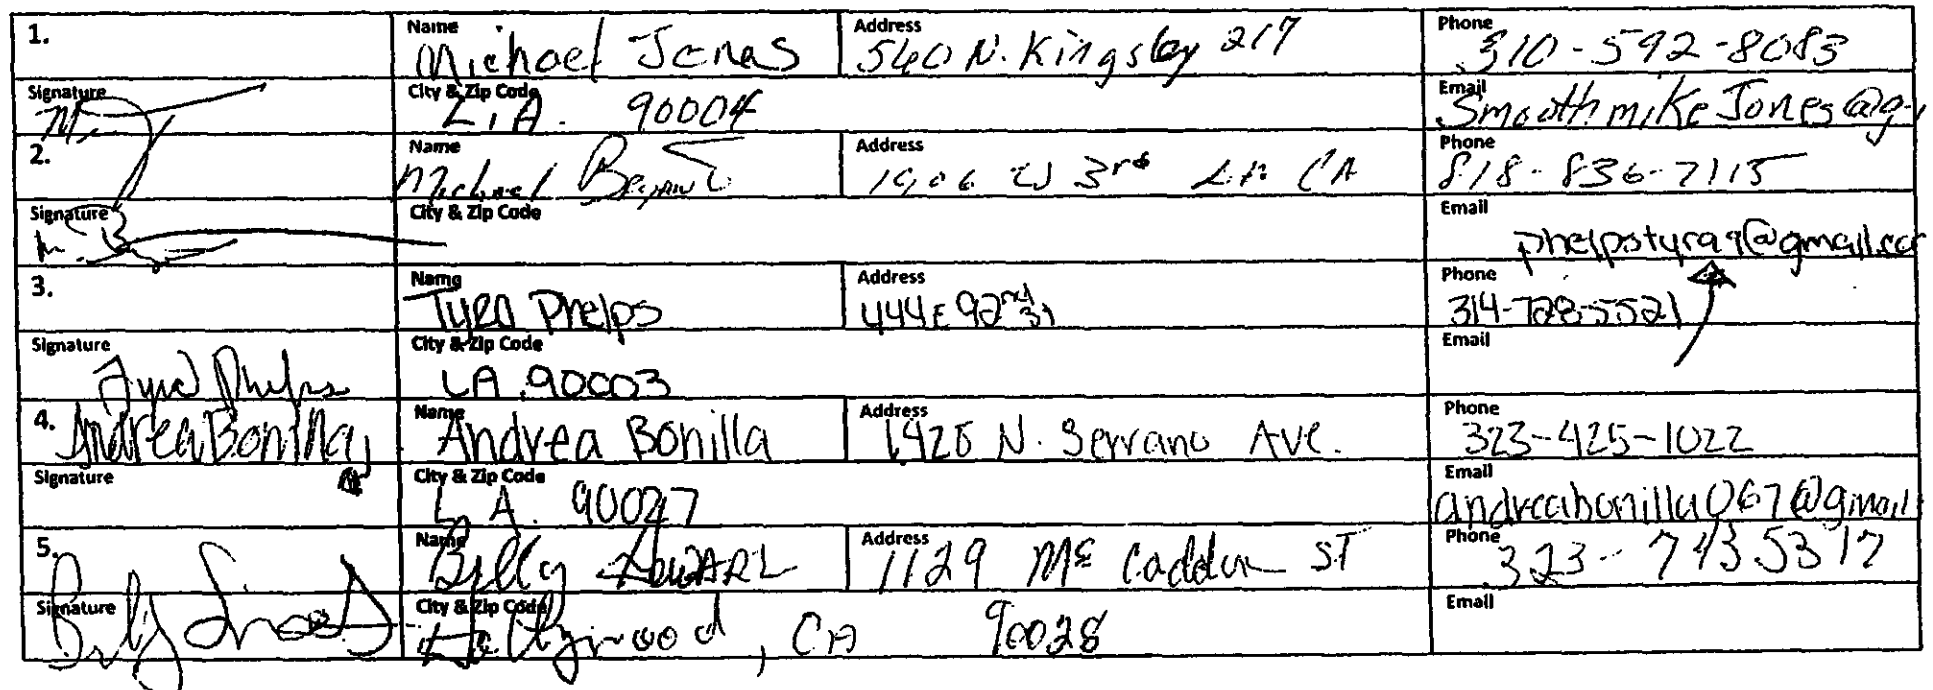 1. Name Michael Jones Address 540 N. Kingsley 217 Phone 310-592-8083
Signature City & Zip Code L.A. 90004 Email Smoothmikejones@g
2. Name Michael Address 1906 W 3rd LA CA Phone 818-836-7115
Signature City & Zip Code Email phelpstyra9@gmail.co
3. Name Tyra Phelps Address 444 E 92nd St Phone 314-728-5521
Signature Tyra Phelps City & Zip Code LA 90003 Email
4. Andrea Bonilla Name Andrea Bonilla Address 1428 N. Serrano Ave. Phone 323-425-1022
Signature City & Zip Code L.A. 90027 Email andreabonilla067@gmail
5. Name Billy Address 1129 Mc Cadden ST Phone 323-7435317
Signature Billy City & Zip Code Hollywood, CA 90028 Email